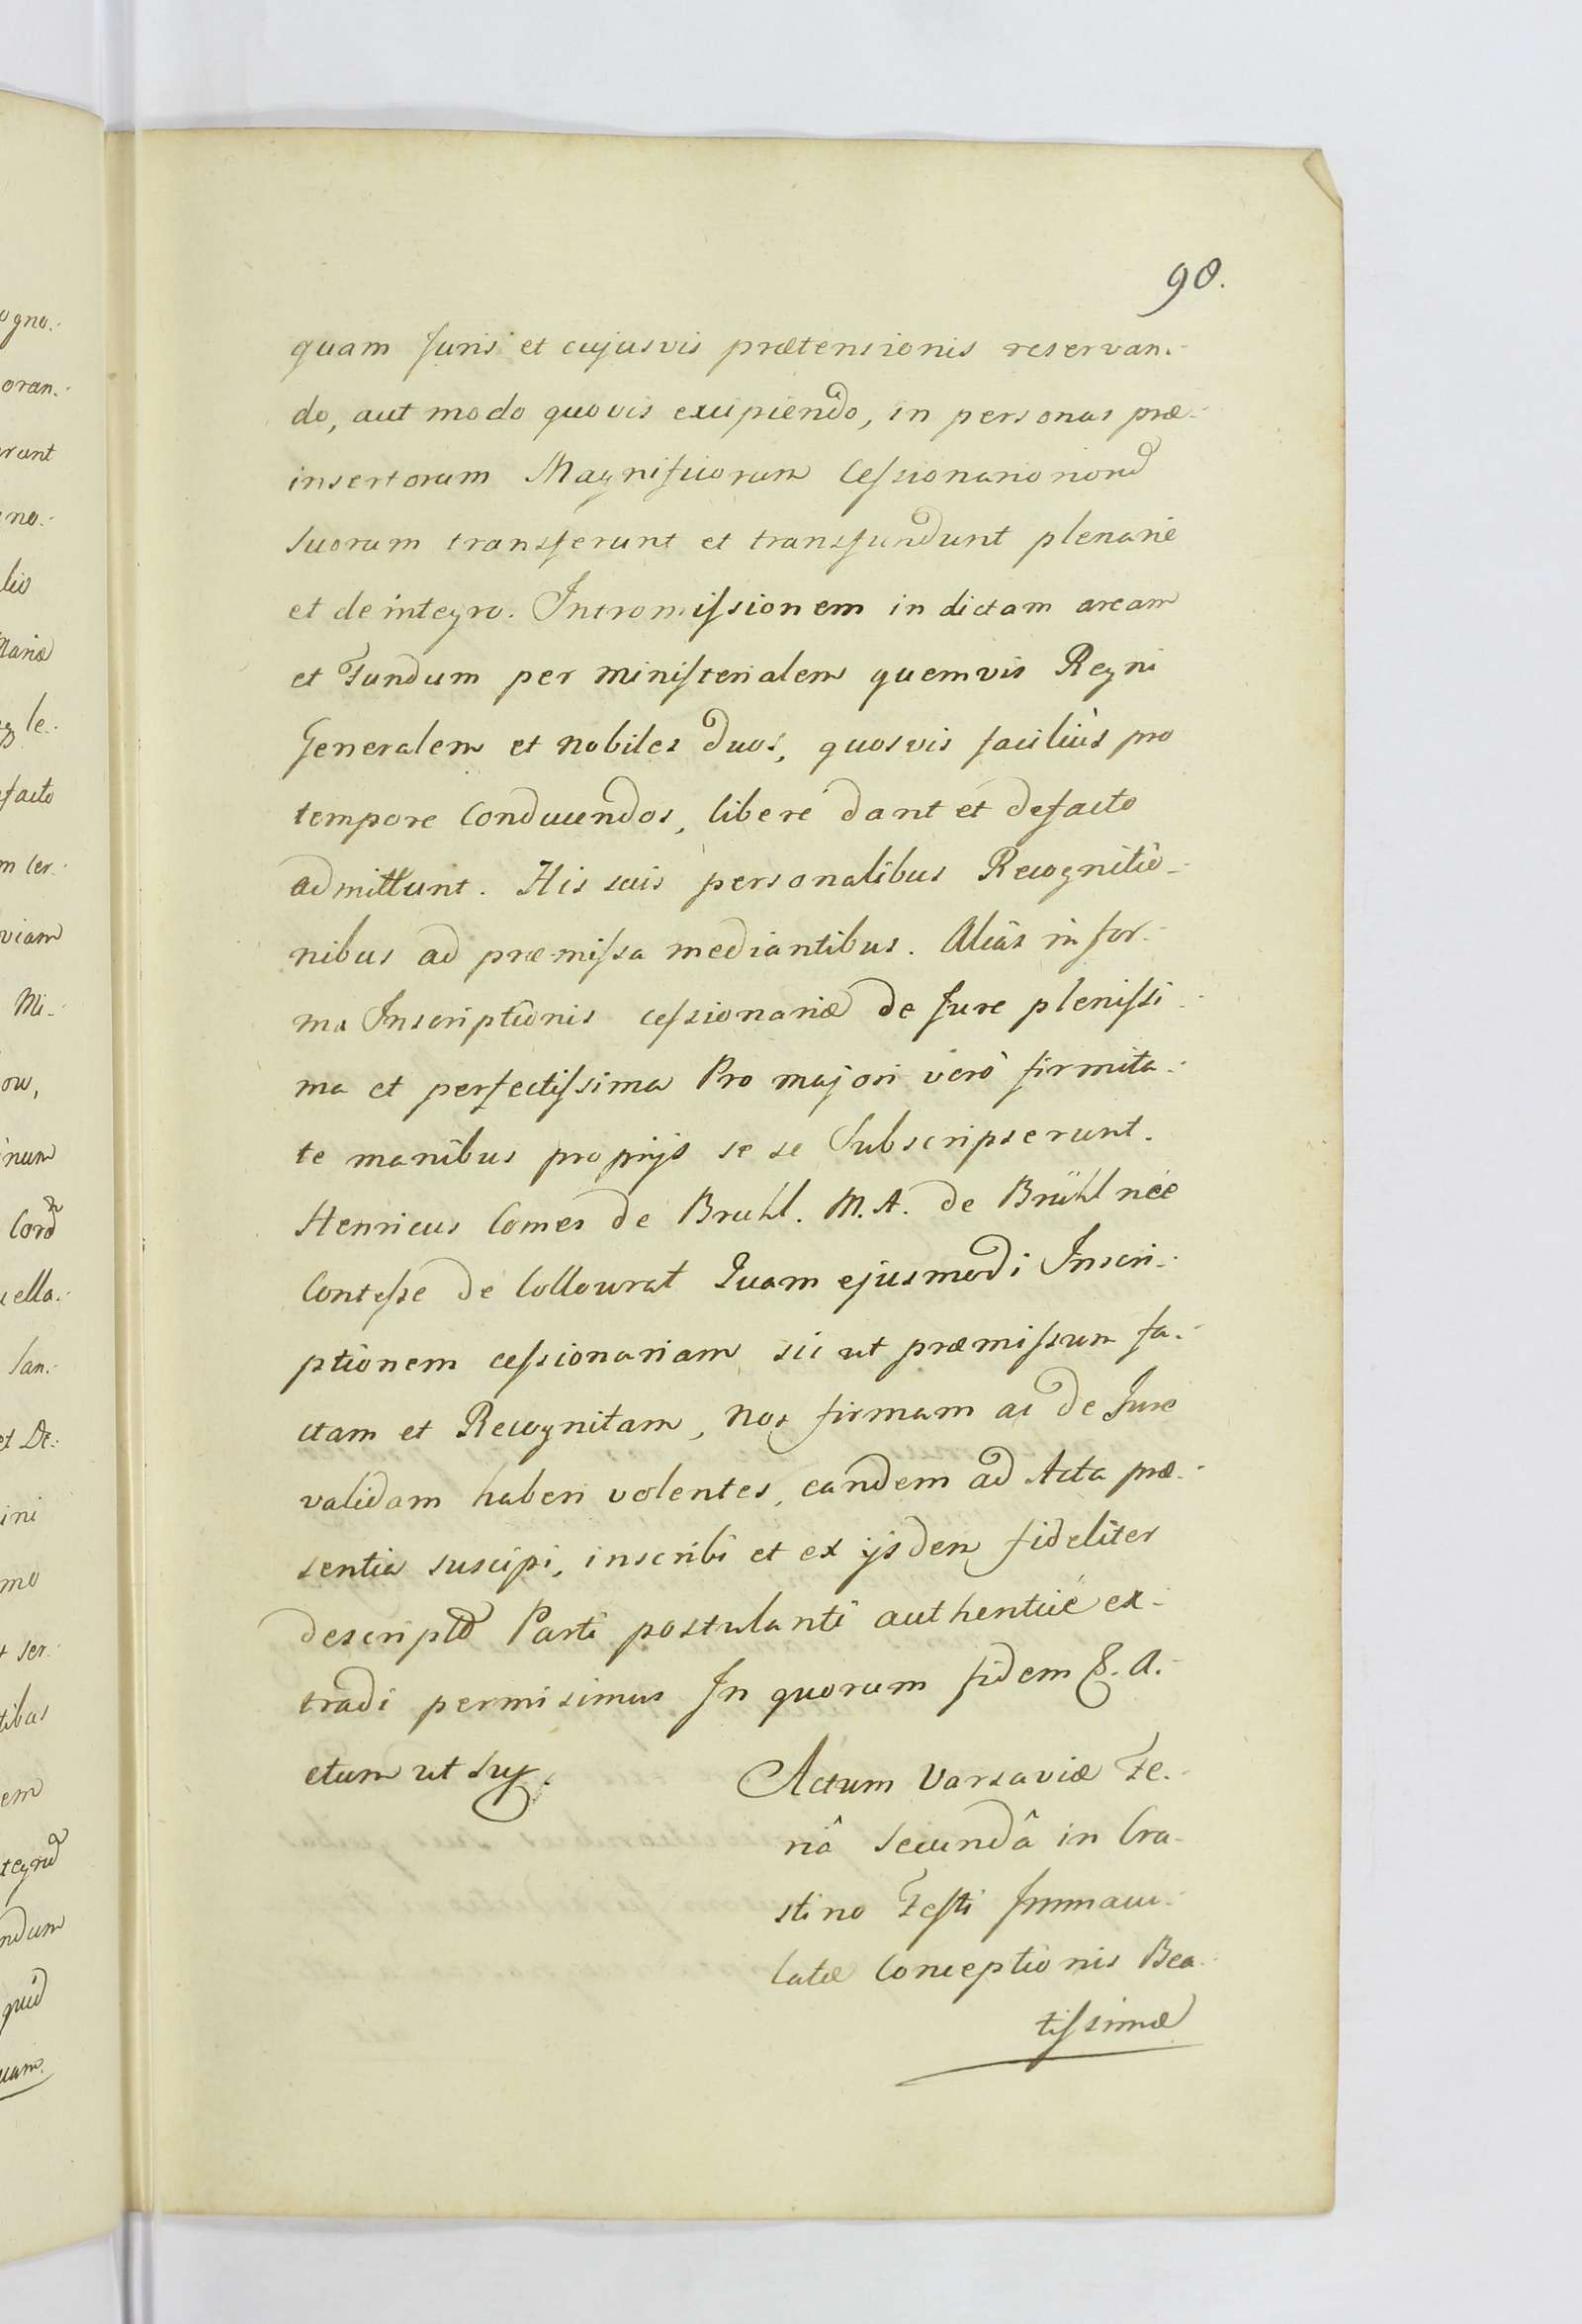 90.
quam Juris et cujusvis prætensionis reservan.
do, aut modo quovis excipiendo, in personas præ.
insertorum Magnificorum Cessionarioriorũ
suorum transferunt et transfundunt plenarie
et de integro. Intromissionem in dictam aream
et Fundum per ministerialem quemvis Regni
Generalem et nobiles duos, quosvis faciliùs pro
tempore conducendos, liberé dant et defacto
admittunt. His suis personalibus Recognitio-
nibus ad præmissa mediantibus. Aliàs in for.
ma Inscriptionis cessionariæ de Jure plenissi.
ma et perfectissima Pro majori verò firmita.
te manibus proprijs se se Subscripserunt.
Henricus Comes de Bruhl. M. A. de Brühl née
Contesse de Collowrat Quam ejusmodi Inscri.
ptionem cessionariam sic ut præmissum fa.
ctam et Recognitam, nos firmam ac de Jure
validam haberi volentes, eandem ad Acta præ.
sentia suscipi, inscribi et ex ijsdem fideliter
descriptũ Parti postulanti authenticè ex-
tradi permisimus In quorum fidem &. A.
ctum ut sup.
Actum Varsaviæ Fe.
riâ secundâ in Cra-
stino Festi Immacu.
latæ Conceptionis Bea.
tissimæ
ogno.
oran.
no.
lio
le.
facto
m cer.
viam
Mi.
ow,
inum
ella.
san.
et De.
ini
mo
ser.
tibus
em
ndum
quid
uam.